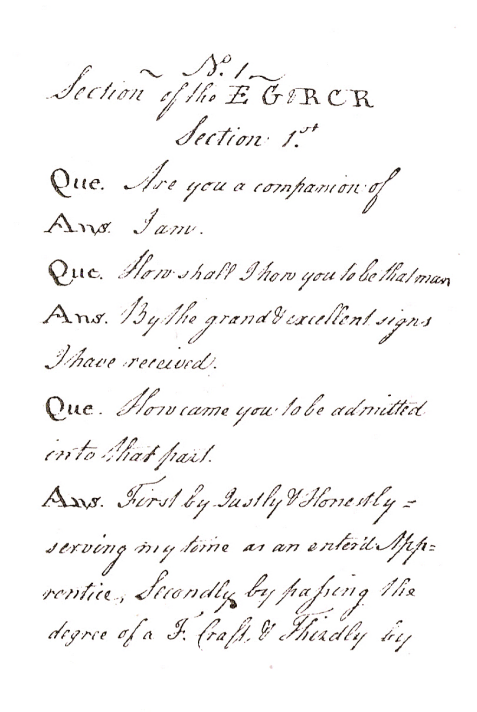 No. 1
Section of the E G & R C R
Section 1.st
Que. Are you a companion of
Ans. I am.
Que. How shall I know you to be that man
Ans. By the grand & excellent signs
I have received.
Que. How came you to be admitted
into that part.
Ans. First by Justly & Honestly =
serving my time as an enter'd App=
rentice, Secondly by passing the
degree of a F. Craft, & Thirdly by